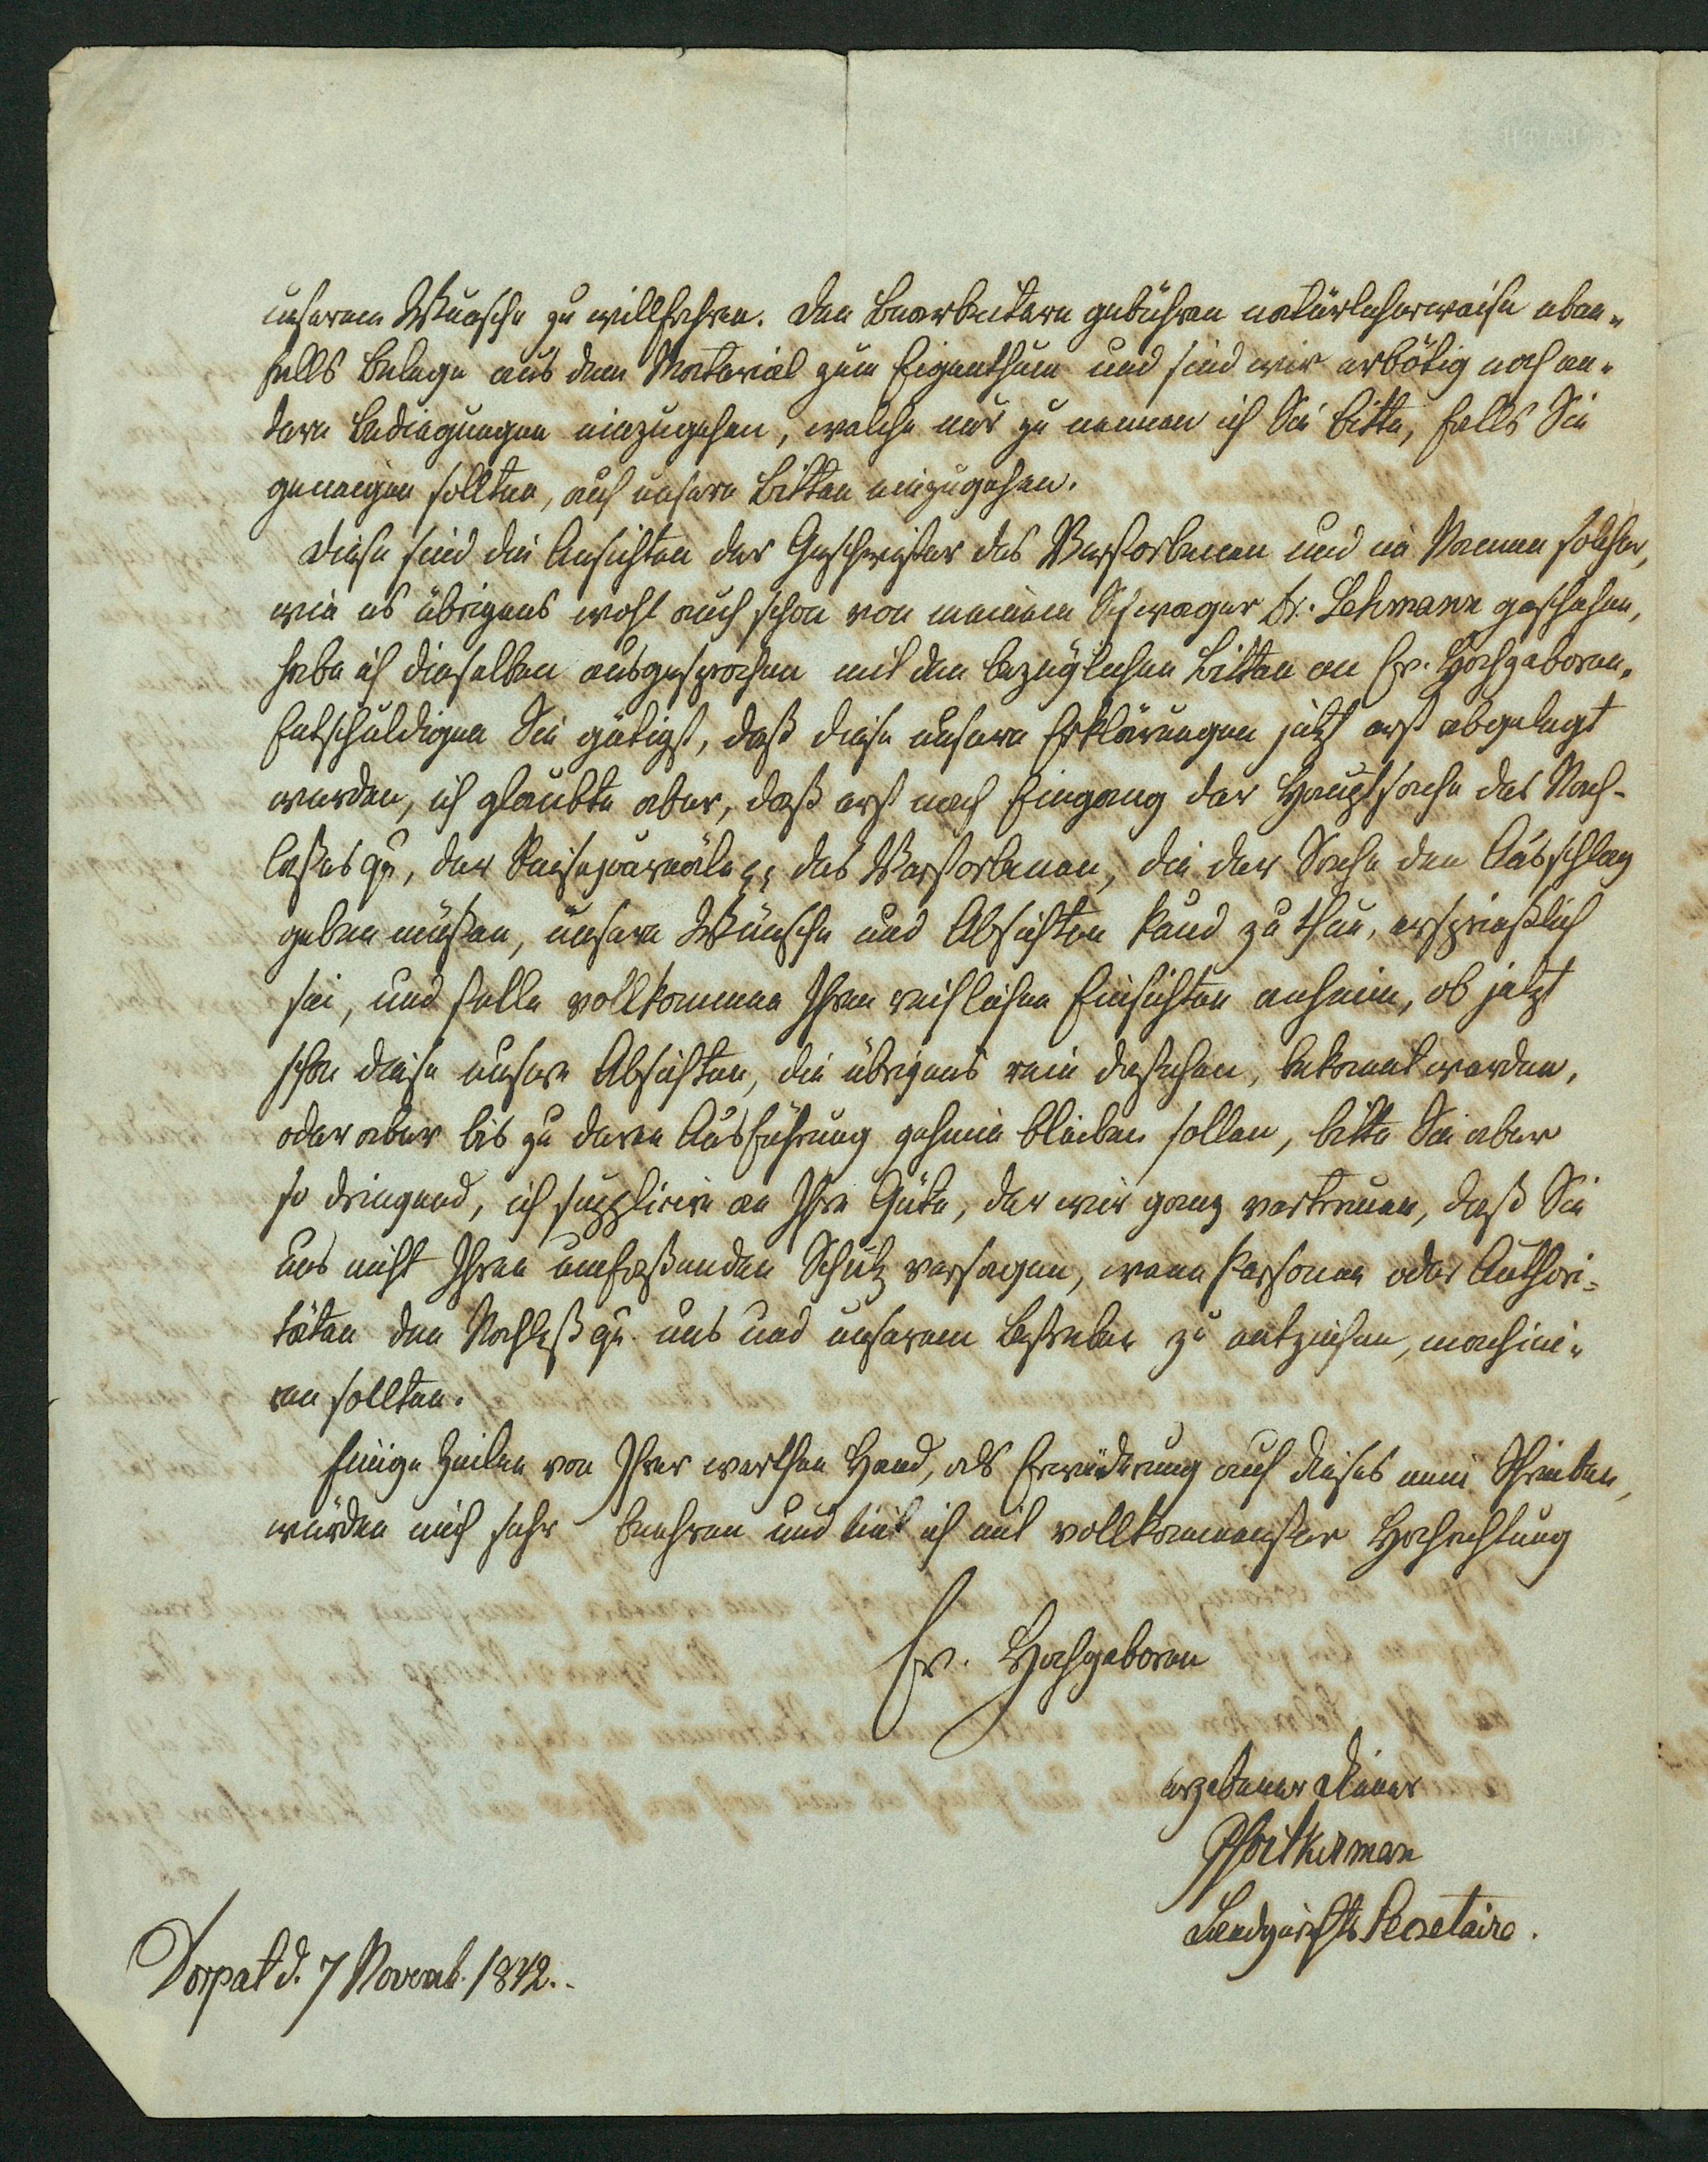 unserem Wunsche zu willfahren. Den Bearbeitern gebühren natürlicherweise eben„
falls Belege aus dem Material zum Eigenthum und sind wir erbötig noch an„
dere Bedingungen einzugehen, welche mir zu nennen ich Sie bitte, falls Sie
geneigen sollten, auf unsere Bitten einzugehen.
Diese sind die Ansichten der Geschwister des Verstorbenen und im Namen solcher,
wie es übrigens wohl auch schon von meinem Schwager Dr. Lehmann geschehen,
habe ich dieselben ausgesprochen mit den bezüglichen Bitten an Ew. Hochgeboren.
Entschuldigen Sie gütigst, daß diese unsere Erklärungen jetzt erst abgelegt
werden, ich glaubte aber, daß erst nach Eingang der Hauptsache des Nach-
laßes, der Reisejournäle des Verstorbenen, die der Sache den Ausschlag
geben müßen, unsere Wünsche und Absichten kund zu thun, ersprießlich
sei, und stelle vollkommen Ihren reiflichen Einsichten anheim, ob jetzt
schon diese unsere Absichten, die übrigens rein dastehen, bekannt werden,
oder aber bis zu deren Ausführung geheim bleiben sollen, bitte Sie aber
so dringend, ich supplicire an Ihre Güte, der wir ganz vertrauen, daß Sie
uns nicht Ihren umfaßenden Schutz versagen, wenn Personen oder Authori-
täten den Nachlaß uns und unserem Bestreben zu entziehen, machini„
ren sollten.
Einige Zeilen von Ihrer werthen Hand, als Erwiderung auf dieses mein Schreiben,
würden mich sehr beehren und bin ich mit vollkommenster Hochachtung
Ew. Hochgeboren
ergebener Diener
Landgerichts Secretaire.
Dorpat d. 7 Novemb. 1842.